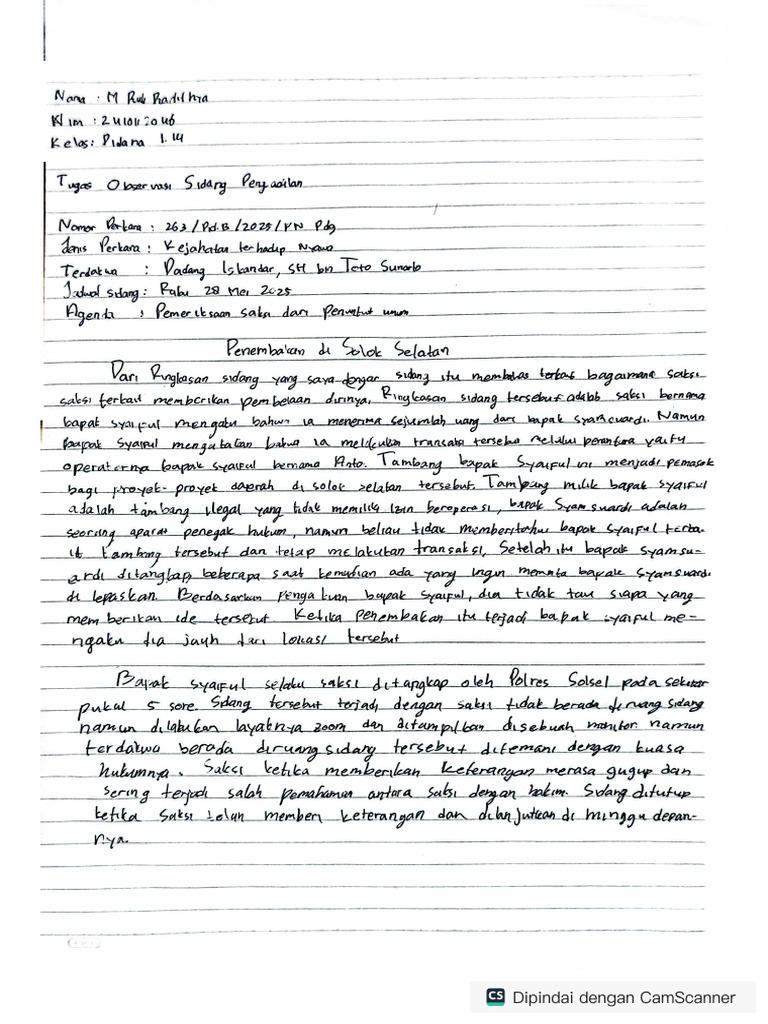 Nama : M
Nim : 
Kelas : Pidana 1.14
Tugas Observasi Sidang Pengadilan
Nomor Perkara : 263/Pid.B/2025/PN Pdg
Jenis Perkara : Kejahatan terhadap Nyawa
Terdakwa : Dadang Iskandar, SH bin Toto Sunarto
Jadwal sidang : Rabu 28 Mei 2025
Agenda : Pemeriksaan saksi dari penuntut umum
Penembakan di Solok Selatan
Dari Ringkasan sidang yang saya dengar sidang itu membahas terkait bagaimana saksi
saksi terkait memberikan pembelaan dirinya, Ringkasan sidang tersebut adalah saksi bernama
bapak syaiful mengaku bahwa ia menerima sejumlah uang dari bapak syamsuardi. Namun
bapak Syaiful mengatakan bahwa ia melakukan transaksi tersebut melalui perantara yaitu
operatornya bapak syaiful bernama Anto. Tambang bapak Syaiful ini menjadi pemasok
bagi proyek-proyek daerah di solok selatan tersebut. Tambang milik bapak syaiful
adalah tambang ilegal yang tidak memiliki izin beroperasi, bapak Syamsuardi adalah
seorang aparat penegak hukum, namun beliau tidak memberitahu bapak syaiful terka-
it tambang tersebut dan tetap melakukan transaksi, Setelah itu bapak syamsu-
ardi ditangkap, beberapa saat kemudian ada yang ingin meminta bapak Syamsuardi
di lepaskan. Berdasarkan pengakuan bapak syaiful, dia tidak tau siapa yang
memberikan ide tersebut. Ketika penembakan itu terjadi bapak syaiful me-
ngaku dia jauh dari lokasi tersebut
Bapak syaiful selaku saksi ditangkap oleh Polres Solsel pada sekitar
pukul 5 sore. Sidang tersebut terjadi dengan saksi tidak berada diruang sidang
namun dilakukan layaknya zoom dan ditampilkan disebuah monitor namun
terdakwa berada diruang sidang tersebut ditemani dengan kuasa
hukumnya. Saksi ketika memberikan keterangan merasa gugup dan
sering terjadi salah pemahaman antara saksi dengan hakim. Sidang ditutup
ketika saksi telah memberi keterangan dan dilanjutkan di minggu depan-
nya.
CS Dipindai dengan CamScanner